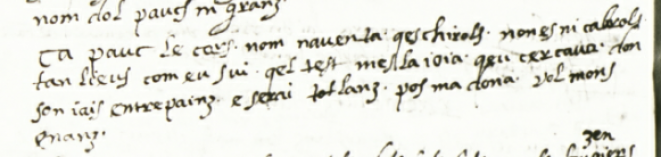 nom dol pauc ni granz
Ta pauc le cors. nom nauenta. qeschirols. non es ni cabrols
tan lieus com eu sui. qel test mes la ioia. qeu cercaua. don
son iais entrepainz. e serai totlanz. pos ma dona. vol mons
enanz.
zen